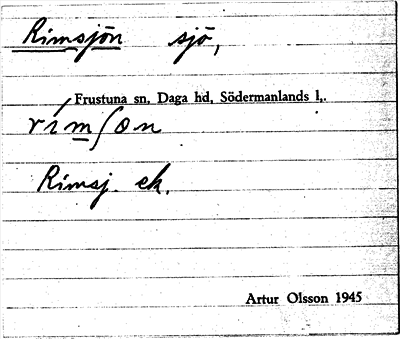 Rimsjön sjö,
Frustuna sn, Daga hd, Södermanlands l,.
rímʃon
Rimsj. ek.
Artur Olsson 1945